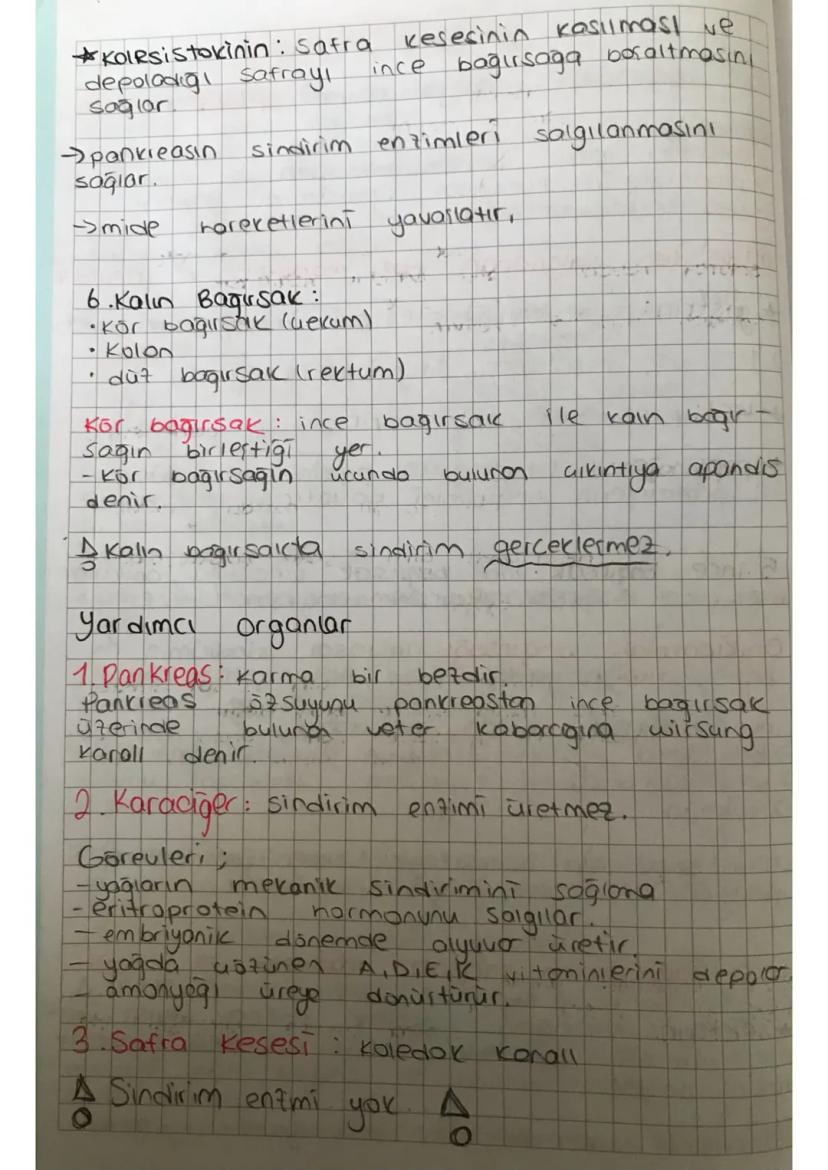 ★Kolesistokinin: Safra kesesinin kasılması ve
depoladığı safrayı ince bağırsağa boşaltmasını
sağlar.
→pankreasın sindirim enzimleri salgılanmasını
sağlar.
→mide hareketlerini yavaşlatır.
6. Kalın Bağırsak:
• Kör bağırsak (çekum)
• Kolon
• düz bağırsak (rektum)
Kör bağırsak: ince bağırsak ile kalın bağır-
sağın birleştiği yer.
- Kör bağırsağın ucunda bulunan çıkıntıya apandis
denir.
Kalın bağırsakta sindirim gerçekleşmez.
Yardımcı organlar
1. Pankreas: Karma bir bezdir.
Pankreas özsuyunu pankreastan ince bağırsak
üzerinde bulunan veter kabarcığına wirsung
kanalı denir.
2. Karaciğer: sindirim enzimi üretmez.
Görevleri;
- yağların mekanik sindirimini sağlama
- eritroprotein hormonunu salgılar.
- embriyonik dönemde alyuvar üretir.
- yağda çözünen A,D,E,K vitaminlerini depolar
- amonyağı üreye dönüştürür.
3. Safra Kesesi: koledok kanalı
Sindirim enzmi yok